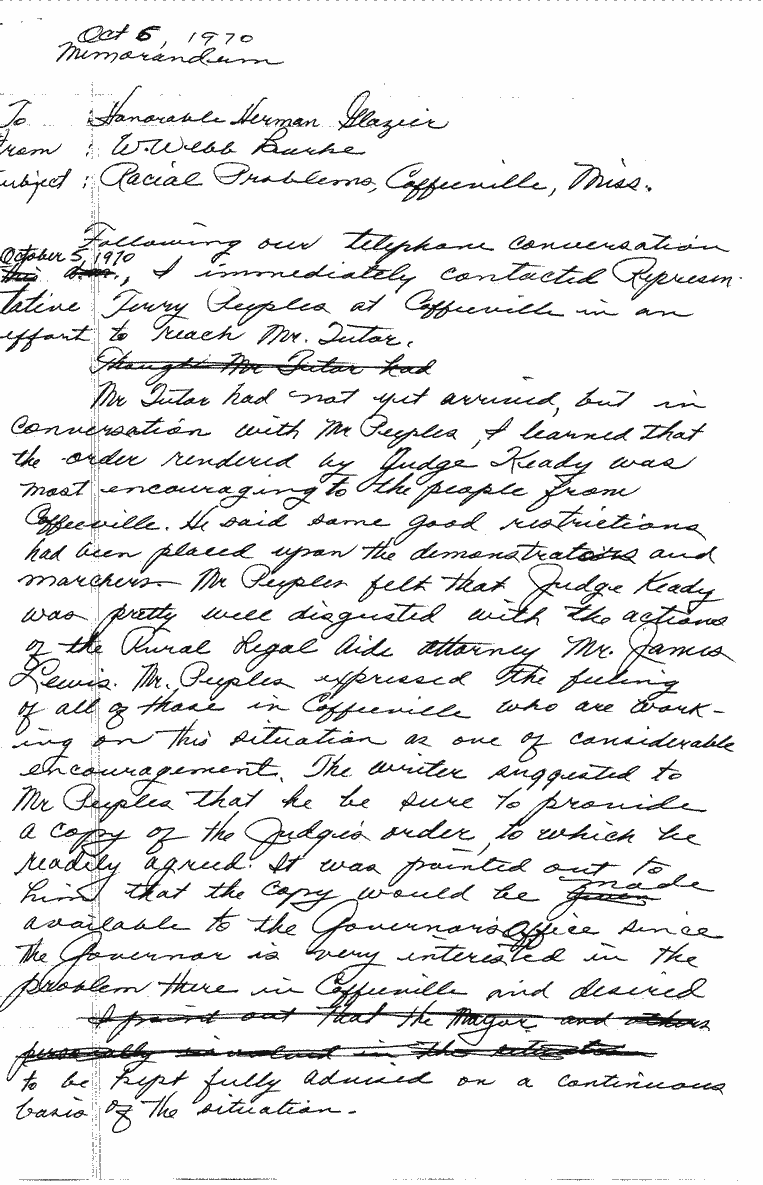 Oct 5, 1970
Memorandum
To : Honorable Herman Glazier
From : W. Webb Burke
Subject : Racial Problems, Coffeeville, Miss.
Following our telephone conversation
October 5, 1970
this a.m., I immediately contacted Represen-
tative Terry Peeples at Coffeeville in an
effort to reach Mr. Tutor.
Though Mr Tutor had
Mr Tutor had not yet arrived, but in
conversation with Mr Peeples, I learned that
the order rendered by Judge Keady was
most encouraging to the people from
Coffeeville. He said some good restrictions
had been placed upon the demonstrators and
marchers. Mr Peeples felt that Judge Keady
was pretty well disgusted with the actions
of the Rural Legal Aide attorney Mr. James
Lewis. Mr. Peeples expressed the feeling
of all of those in Coffeeville who are work-
ing on this situation as one of considerable
encouragement. The writer suggested to
Mr Peeples that he be sure to provide
a copy of the Judge's order, to which he
readily agreed. It was pointed out to
him that the copy would be given made
available to the Governor's Office since
the Governor is very interested in the
problem there in Coffeeville and desired
I point out that the Mayor and others
personally involved in the situation
to be kept fully advised on a continuous
basis of the situation.